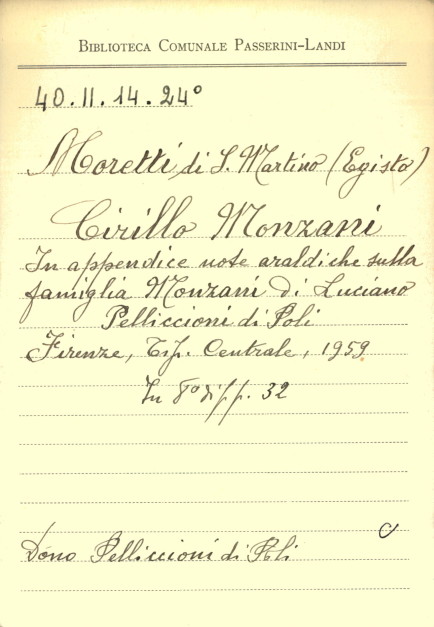 BIBLIOTECA COMUNALE PASSERINI-LANDI
40.II.14.24°
Moretti di S. Martino (Egisto)
Cirillo Monzani
In appendice note araldiche sulla
famiglia Monzani di Luciano
Pelliccioni di Poli
Firenze, Tip. Centrale, 1959
In 8° di pp. 32
C
Dono Pelliccioni di Poli